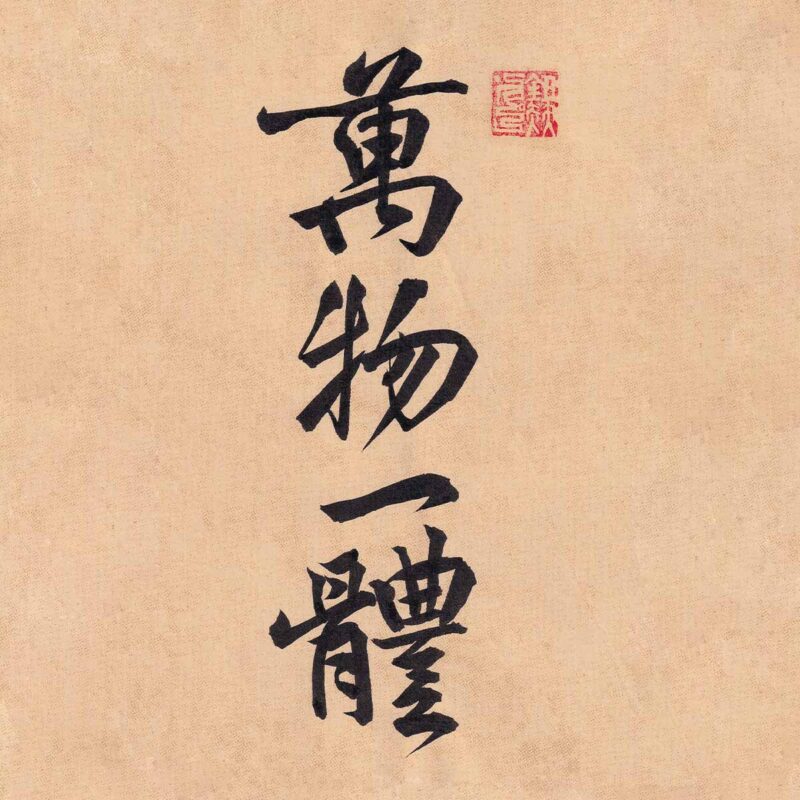 萬物一體